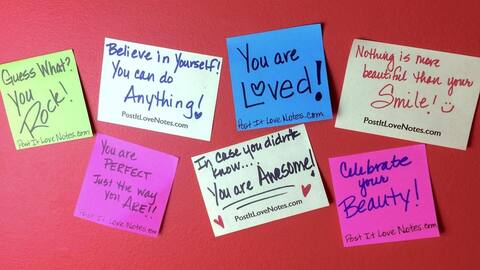 Guess What?
You
Rock!
Post It Love Notes.com
Believe in Yourself!
You can do
Anything!
PostItLoveNotes.com
You are
Loved!
Post It Love Notes.com
Nothing is more
beautiful than your
Smile!
PostItLoveNotes.com
You are
PERFECT
Just the way
you
ARE!!
Post It Love Notes.com
In case you didn't
know...
You are Awesome!
PostItLoveNotes.com
Celebrate
your
Beauty!
Post It Love Notes.com